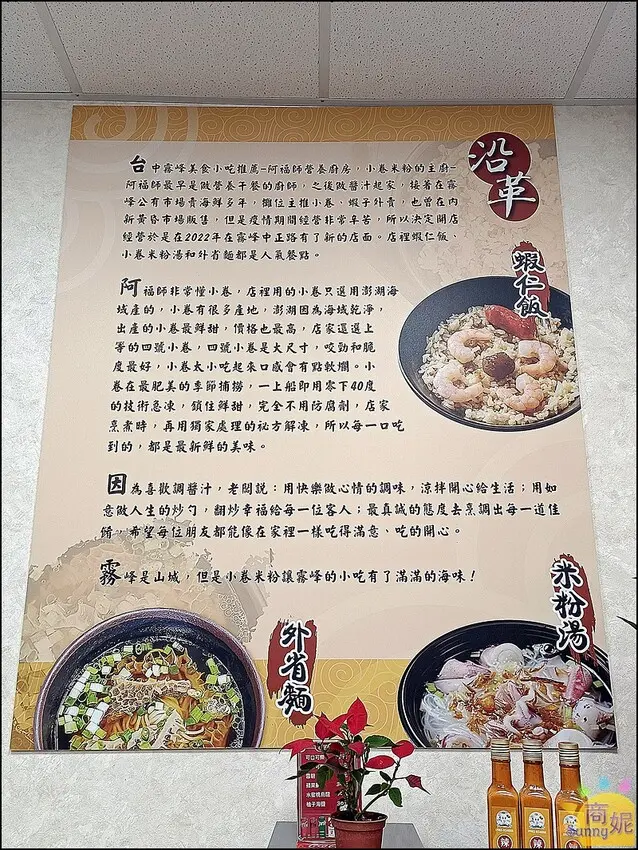 沿革
台中霧峰美食小吃推薦-阿福師營養廚房，小卷米粉的主廚-
阿福師最早是做營養午餐的廚師，之後做醬汁起家，接著在霧
峰公有市場賣海鮮多年，攤位主推小卷、蝦子外賣，也曾在內
新黃昏市場販售，但是疫情期間經營非常辛苦，所以決定開店
經營於是在2022年在霧峰中正路有了新的店面。店裡蝦仁飯、
小卷米粉湯和外省麵都是人氣餐點。
蝦仁飯
阿福師非常懂小卷，店裡用的小卷只選用澎湖海
域產的，小卷有很多產地，澎湖因為海域乾淨，
出產的小卷最鮮甜，價格也最高，店家還選上
等的四號小卷，四號小卷是大尺寸，咬勁和脆
度最好，小卷太小吃起來口感會有點軟爛。小
卷在最肥美的季節捕撈，一上船即用零下40度
的技術急凍，鎖住鮮甜，完全不用防腐劑，店家
烹煮時，再用獨家處理的祕方解凍，所以每一口吃
到的，都是最新鮮的美味。
因為喜歡調醬汁，老闆說：用快樂做心情的調味，涼拌開心給生活；用如
意做人生的炒勺，翻炒幸福給每一位客人；最真誠的態度去烹調出每一道佳
餚，希望每位朋友都能像在家裡一樣吃得滿意、吃的開心。
霧峰是山城，但是小卷米粉讓霧峰的小吃有了滿滿的海味！
米粉湯
外省麵
辣
辣
商妮
Sunny